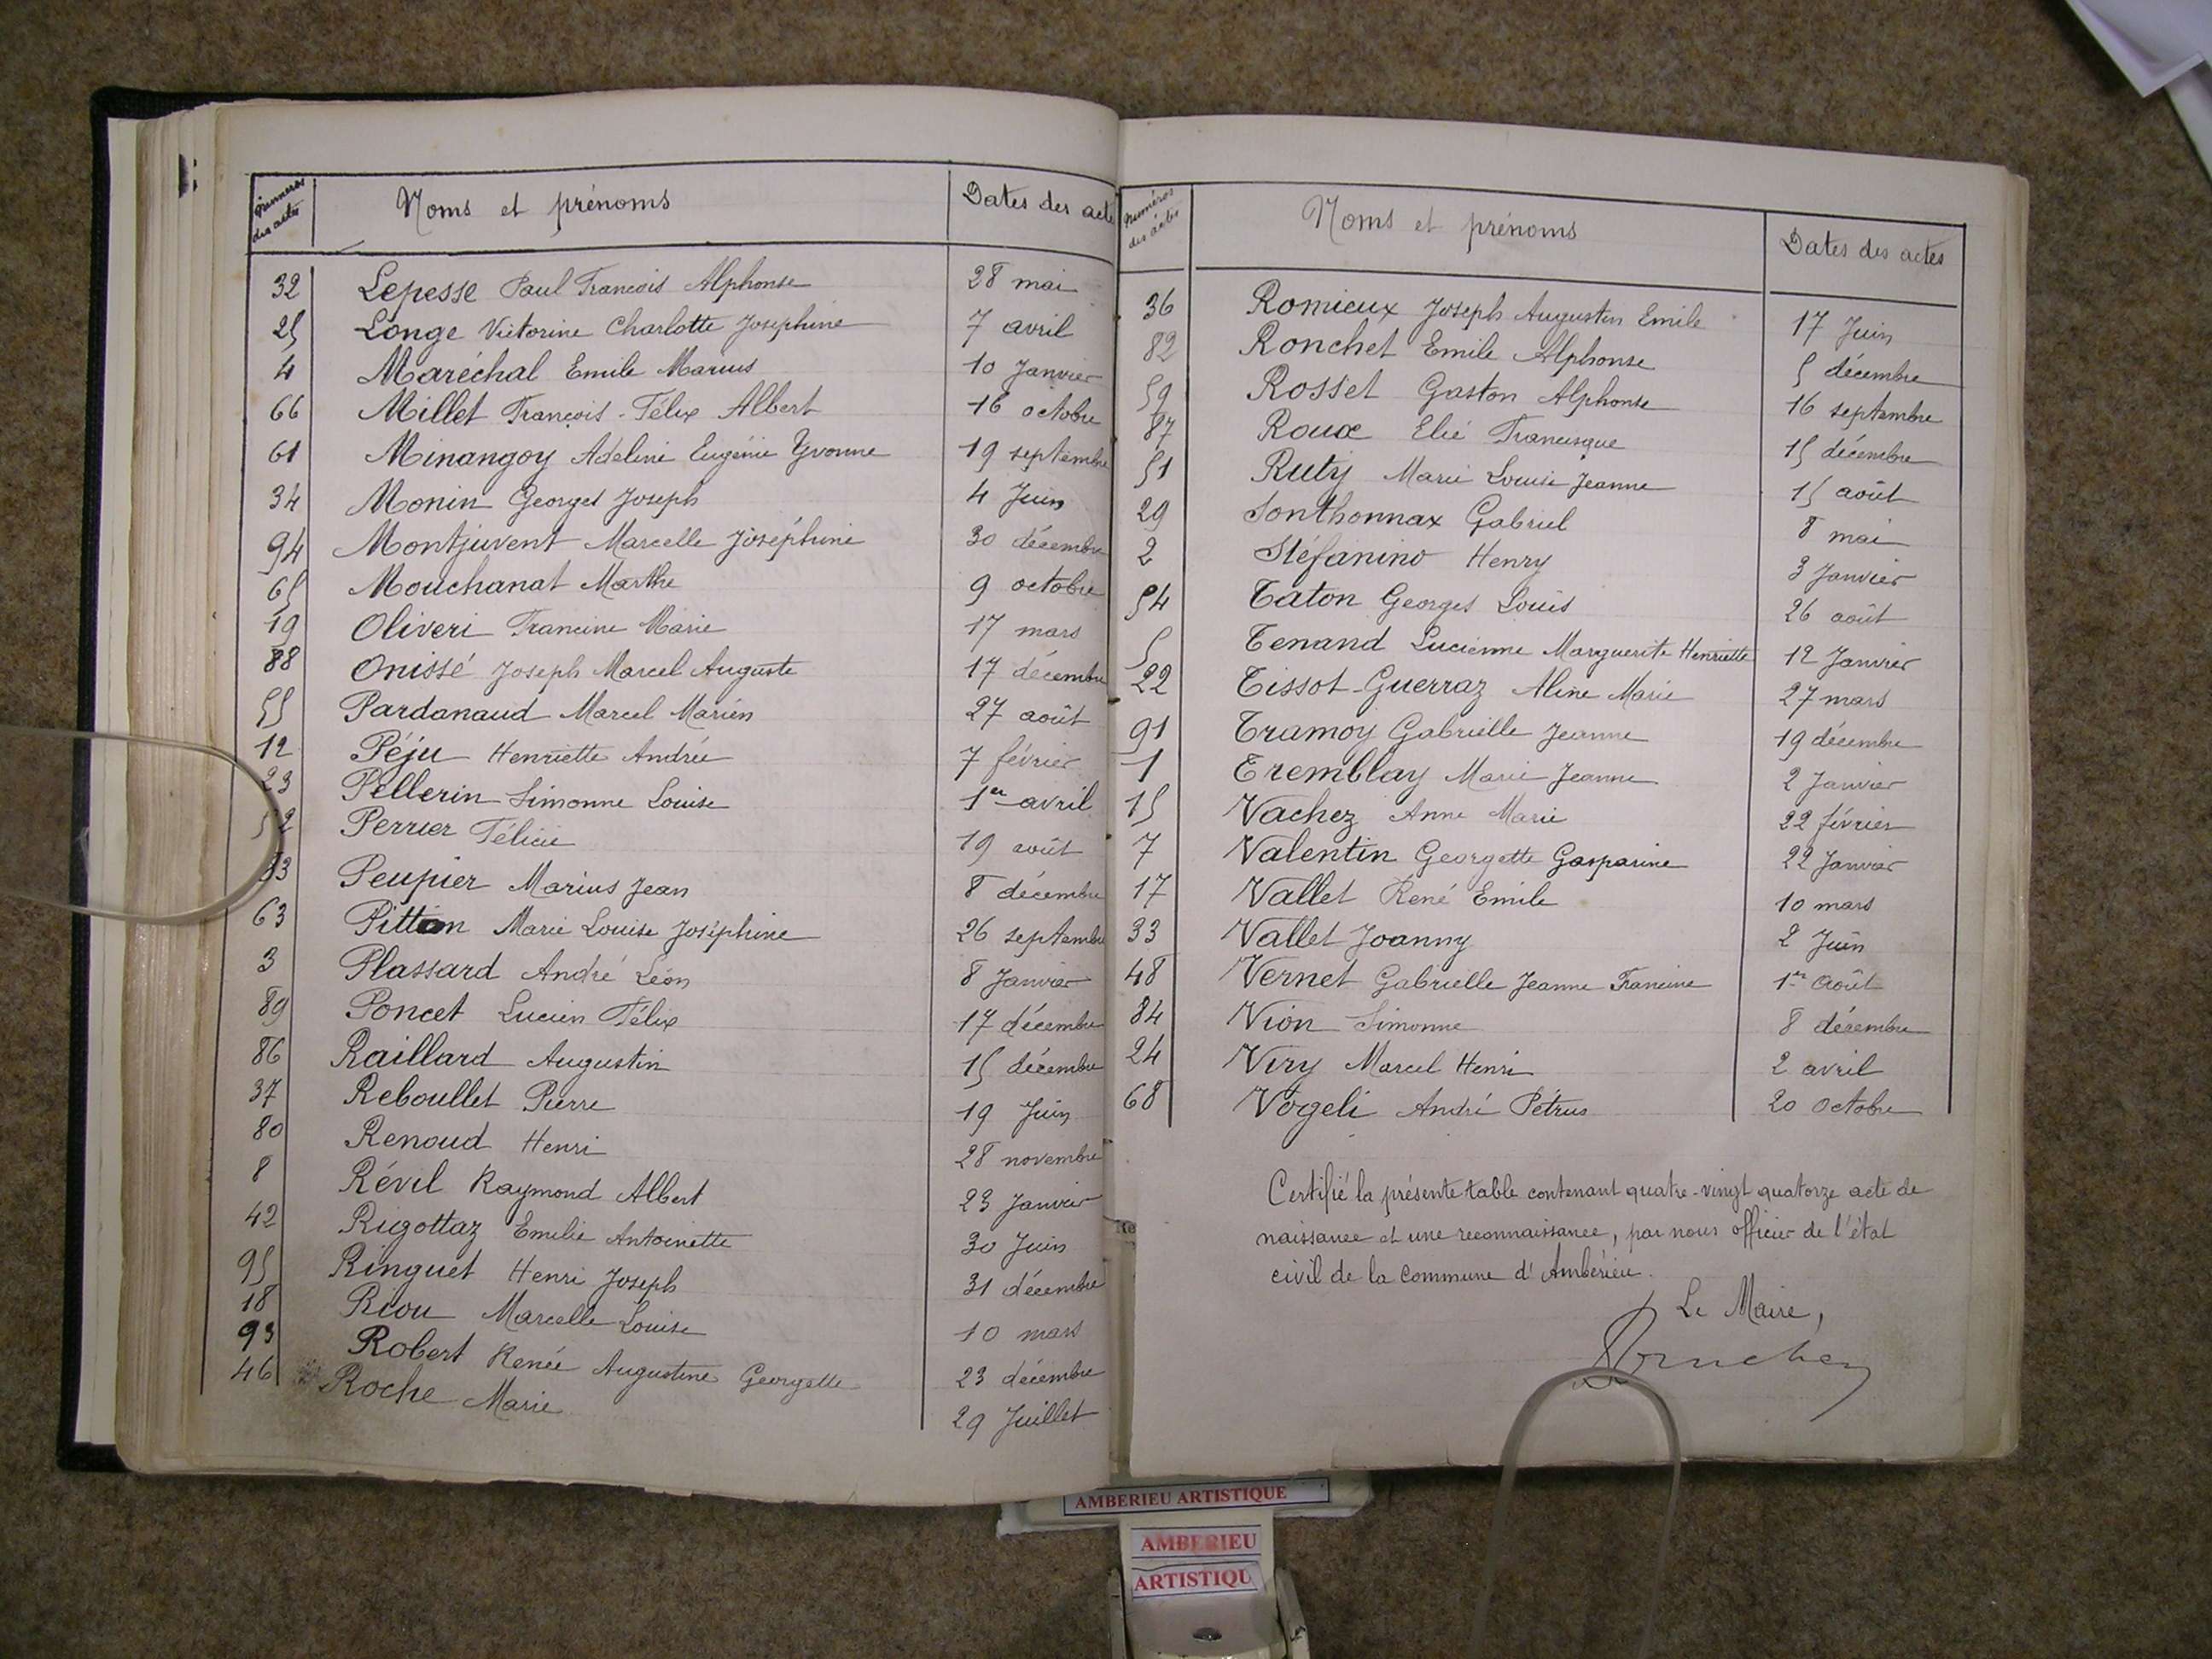 Numéros des actes Noms et prénoms Dates des acte
32 Lepesse Paul François Alphonse 28 mai
25 Longe Victorine Charlotte Joséphine 7 avril
4 Maréchal Emile Marius 10 Janvier
66 Millet François-Félix Albert 16 octobre
61 Minangoy Adeline Eugénie Yvonne 19 septembre
34 Monin Georges Joseph 4 Juin
94 Montjuvent Marcelle Joséphine 30 décembre
65 Mouchanat Marthe 9 octobre
19 Oliveri Francine Marie 17 mars
88 Onissé Joseph Marcel Auguste 17 décembre
55 Pardanaud Marcel Marien 27 août
12 Péju Henriette Andrée 7 février
23 Pellerin Simonne Louise 1er avril
52 Perrier Félicie 19 août
83 Peupier Marius Jean 8 décembre
63 Pitton Marie Louise Joséphine 26 septembre
3 Plassard André Léon 8 Janvier
89 Poncet Lucien Félix 17 décembre
86 Raillard Augustin 15 décembre
37 Reboullet Pierre 19 Juin
80 Renoud Henri 28 novembre
8 Révil Raymond Albert 23 Janvier
42 Rigottaz Emilie Antoinette 30 Juin
95 Ringuet Henri Joseph 31 décembre
18 Riou Marcelle Louise 10 mars
93 Robert Renée Augustine Georgette 23 décembre
46 Roche Marie 29 Juillet
numéros des actes Noms et prénoms Dates des actes
36 Romieux Joseph Augustin Emile 17 Juin
82 Ronchet Emile Alphonse 5 décembre
59 Rosset Gaston Alphonse 16 septembre
87 Roux Elié Francisque 15 décembre
51 Ruty Marie Louise Jeanne 15 août
29 Sonthonnax Gabriel 8 mai
2 Stéfanino Henry 3 Janvier
54 Taton Georges Louis 26 août
5 Tenand Lucienne Marguerite Henriette 12 Janvier
22 Tissot-Guerraz Aline Marie 27 mars
91 Tramoy Gabrielle Jeanne 19 décembre
1 Tremblay Marie Jeanne 2 Janvier
15 Vachez Anne Marie 22 février
7 Valentin Georgette Gasparine 22 Janvier
17 Vallet René Emile 10 mars
33 Vallet Joanny 2 Juin
48 Vernet Gabrielle Jeanne Francine 1er Août
84 Vion Simonne 8 décembre
24 Viry Marcel Henri 2 avril
68 Vögeli André Pétrus 20 Octobre
Certifié la présente table contenant quatre-vingt quatorze acte de
naissance et une reconnaissance, par nous officier de l'état
civil de la Commune d'Ambérieu.
Le Maire,
AMBERIEU ARTISTIQUE
AMBERIEU
ARTISTIQU